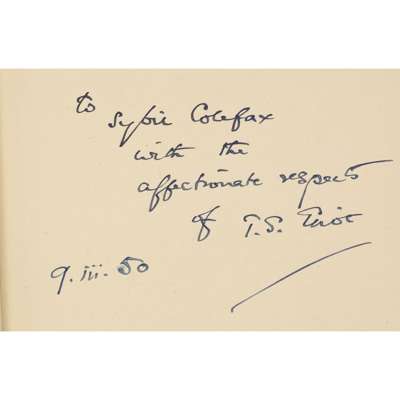 to
Sybil Colefax
with the
affectionate respects
of T.S. Eliot
9.iii.50